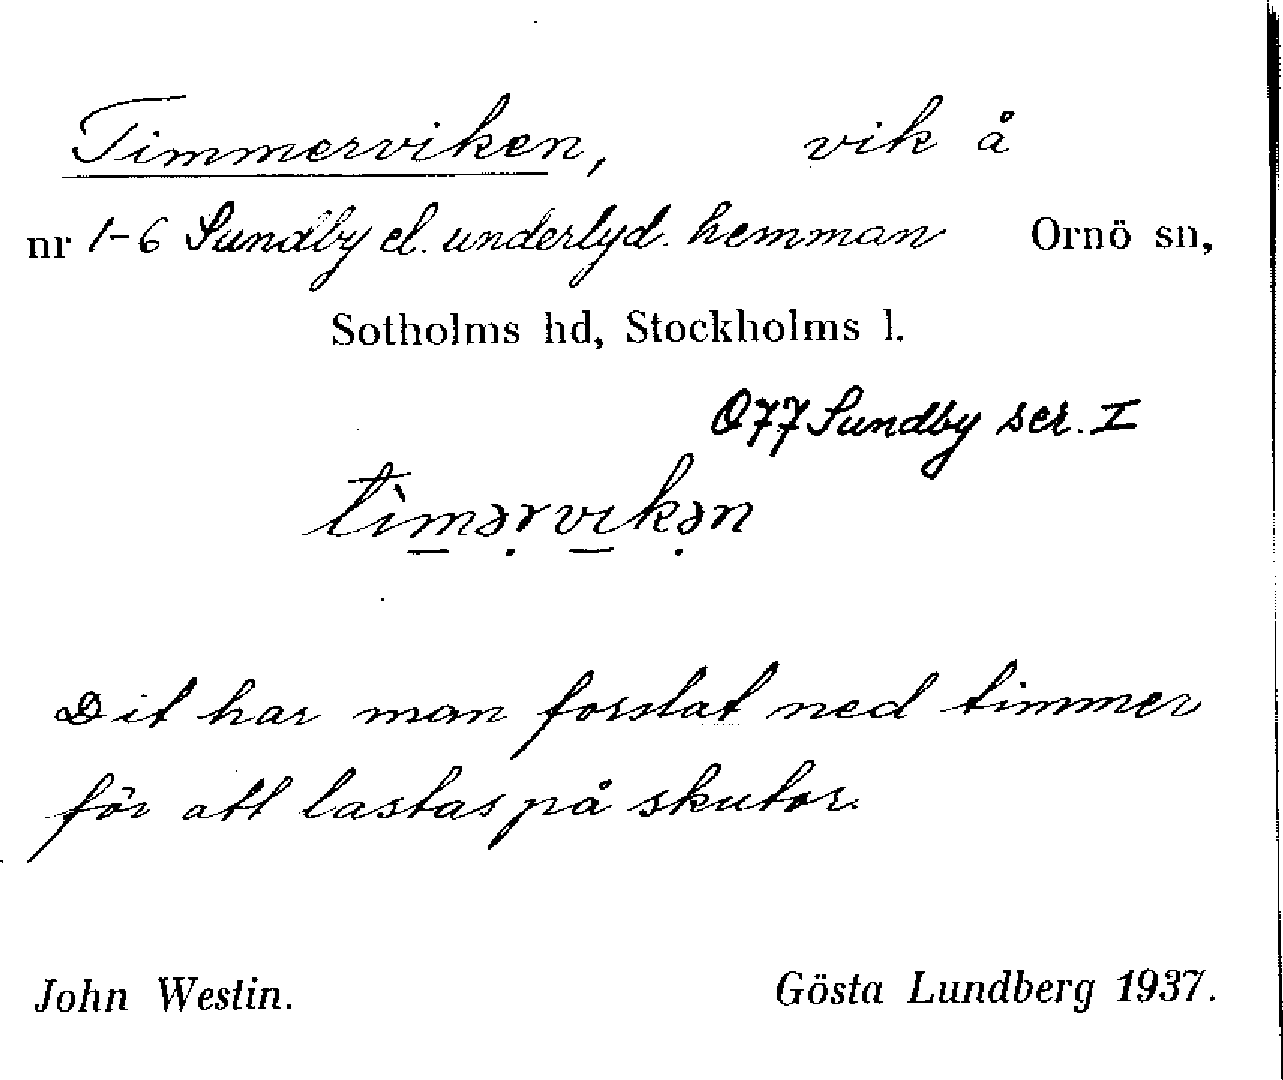 Timmerviken, vik å
nr 1-6 Sundby el. underlyd. hemman Ornö sn,
Sotholms hd, Stockholms l.
077 Sundby ser. I
tìmərvikən
Dit har man forslat ned timmer
för att lastas på skutor.
John Westin. Gösta Lundberg 1937.